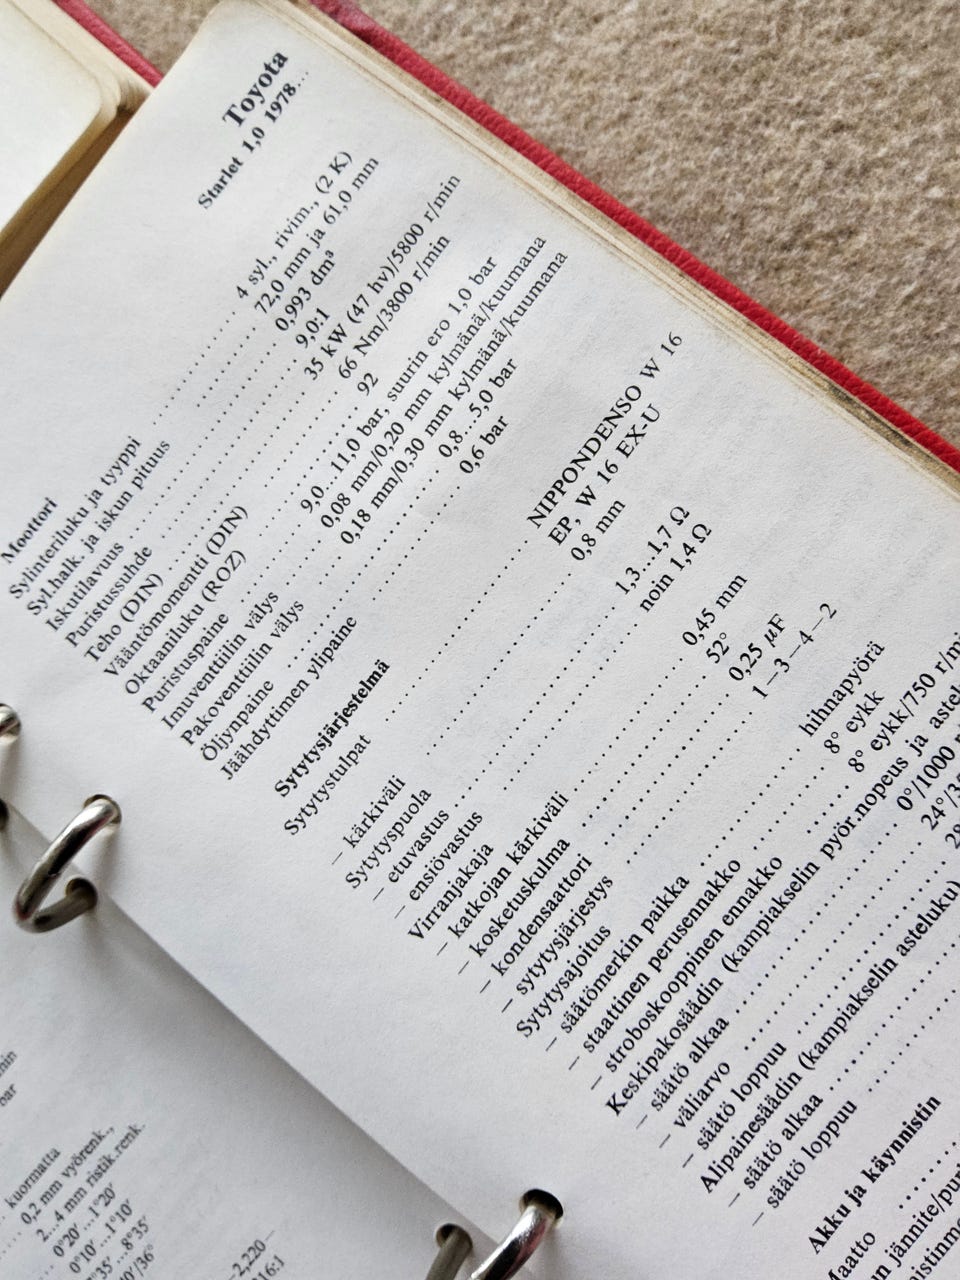 Toyota
Starlet 1,0 1978...
Moottori
Sylinteriluku ja tyyppi ........ 4 syl., rivim., (2 K)
Syl.halk. ja iskun pituus ........ 72,0 mm ja 61,0 mm
Iskutilavuus ........ 0,993 dm³
Puristussuhde ........ 9,0:1
Teho (DIN) ........ 35 kW (47 hv)/5800 r/min
Vääntömomentti (DIN) ........ 66 Nm/3800 r/min
Oktaaniluku (ROZ) ........ 92
Puristuspaine ........ 9,0...11,0 bar, suurin ero 1,0 bar
Imuventtiilin välys ........ 0,08 mm/0,20 mm kylmänä/kuumana
Pakoventtiilin välys ........ 0,18 mm/0,30 mm kylmänä/kuumana
Öljynpaine ........ 0,8...5,0 bar
Jäähdyttimen ylipaine ........ 0,6 bar
Sytytysjärjestelmä
Sytytystulpat ........ NIPPONDENSO W 16
EP, W 16 EX-U
– kärkiväli ........ 0,8 mm
Sytytyspuola
– etuvastus ........ 1,3...1,7 Ω
– ensiövastus ........ noin 1,4 Ω
Virranjakaja
– katkojan kärkiväli ........ 0,45 mm
– kosketuskulma ........ 52°
– kondensaattori ........ 0,25 µF
– sytytysjärjestys ........ 1–3–4–2
Sytytysajoitus
– säätömerkin paikka ........ hihnapyörä
– staattinen perusennakko ........ 8° eykk
– stroboskooppinen ennakko ........ 8° eykk/750 r/mi
Keskipakosäädin (kampiakselin pyör.nopeus ja astel
– säätö alkaa ........ 0°/1000
– väliarvo ........ 24°/
– säätö loppuu ........ 28
Alipainesäädin (kampiakselin asteluku)
– säätö alkaa ........
– säätö loppuu ........
Akku ja käynnistin
Maatto ........
un jännite/
kuormatta
0,2 mm vyörenk.,
2...4 mm ristik.renk.
0°20'...1°20'
0°10'...1°10'
...8°35'
0'/36°
–2,220–
16:1